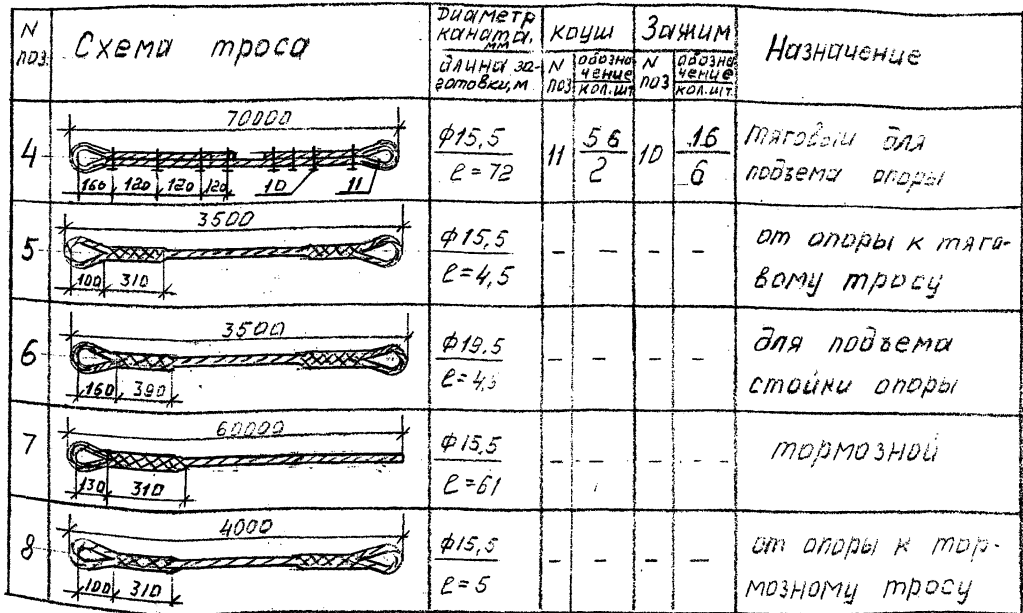 N поз
Схема троса
Диаметр каната, мм
длина заготовки, м
коуш
N поз
обозначение
кол. шт
Зажим
N поз
обозначение
кол. шт.
Назначение
4
70000
160 120 120 120 10 11
ф15,5
ℓ=72
11
56
2
10
16
6
тяговый для
подъема опоры
5
3500
100 310
ф15,5
ℓ=4,5
– – – –
от опоры к тяго-
вому тросу
6
3500
160 390
ф19,5
ℓ=4,5
– – – –
для подъема
стойки опоры
7
60000
130 310
ф15,5
ℓ=61
– – – –
тормозной
8
4000
100 310
ф15,5
ℓ=5
– – – –
от опоры к тор-
мозному тросу